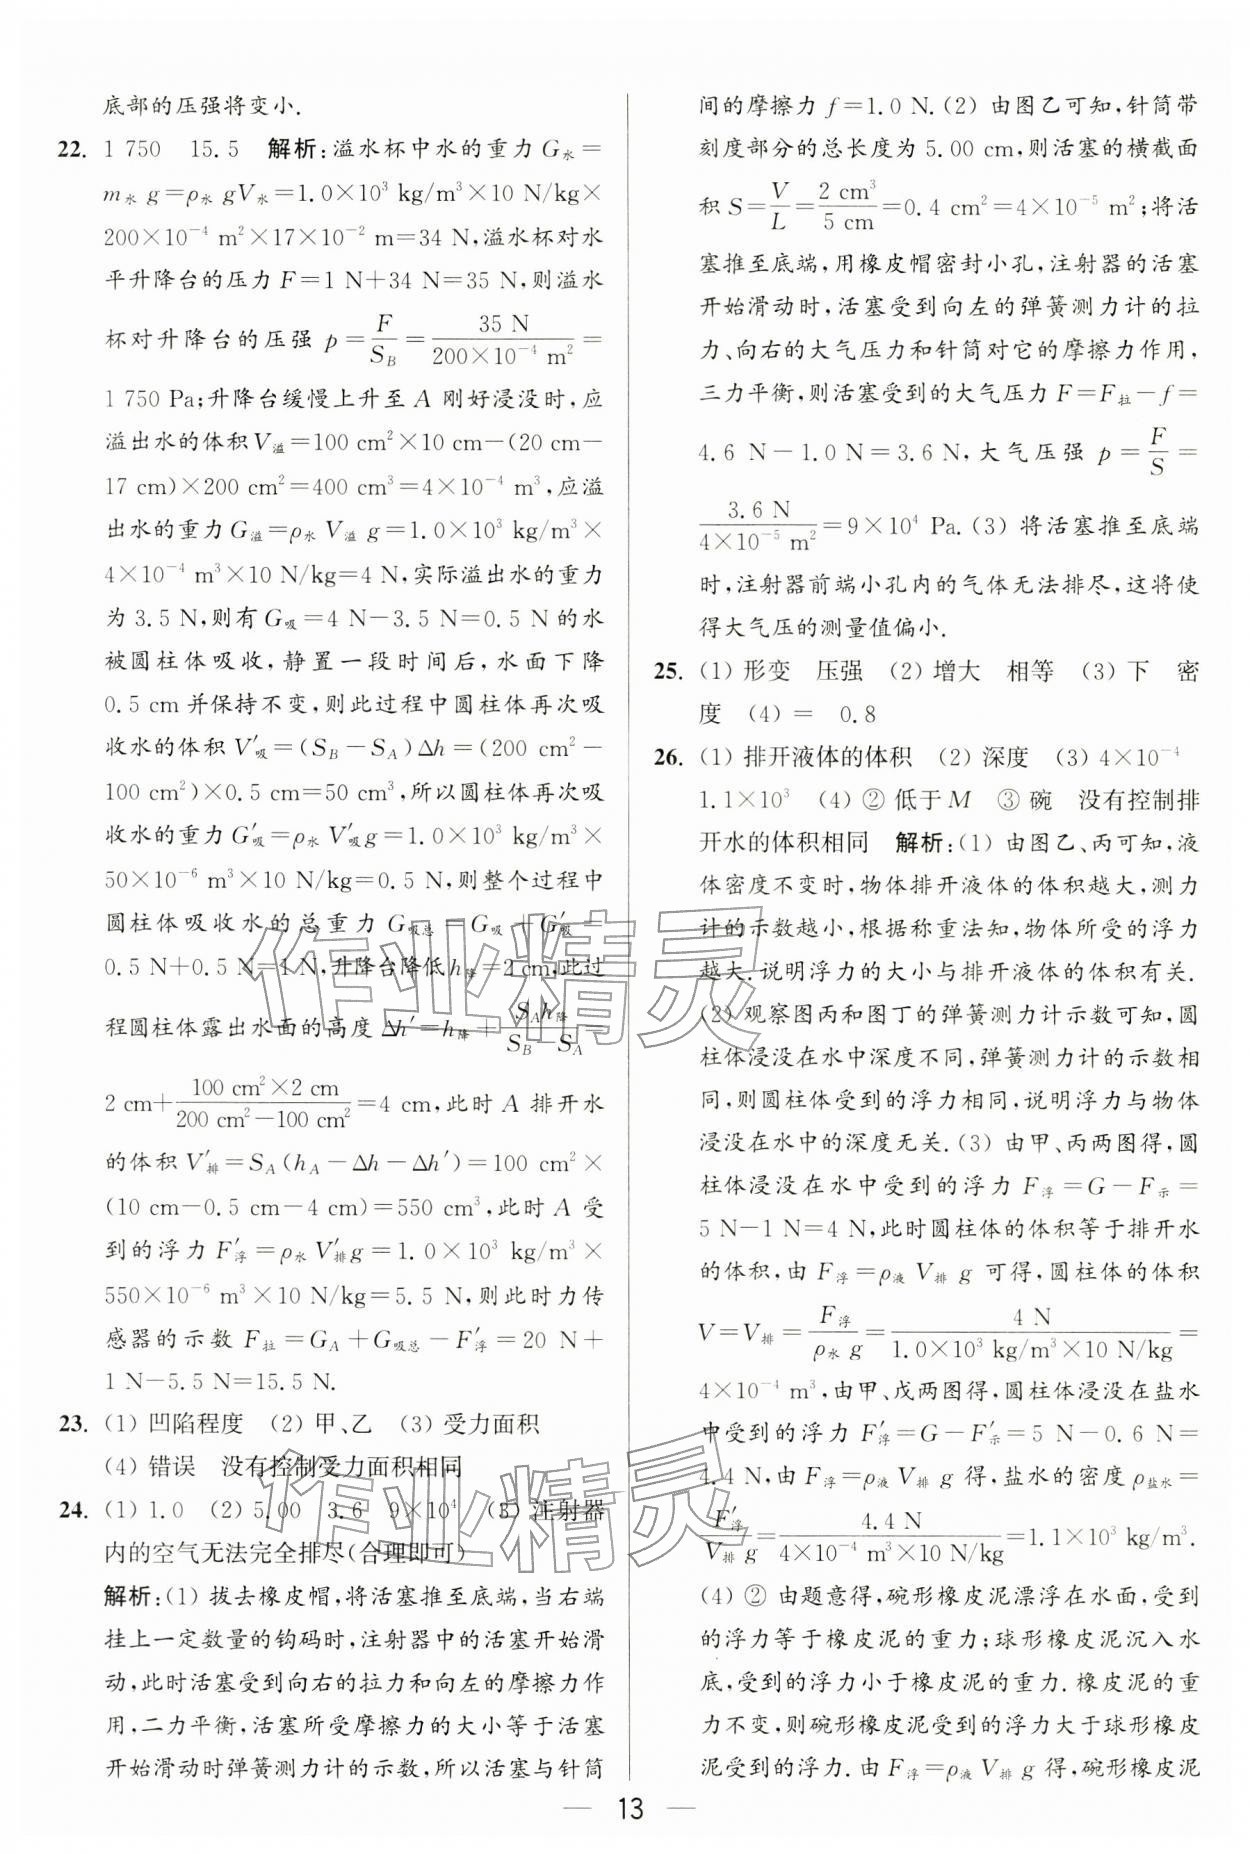 底部的压强将变小.
22. 1 750 15.5 解析:溢水杯中水的重力 G水=
m水 g=ρ水 gV水=1.0×10³ kg/m³×10 N/kg×
200×10⁻⁴ m²×17×10⁻² m=34 N,溢水杯对水
平升降台的压力 F=1 N+34 N=35 N,则溢水
杯对升降台的压强 p=F/S_B=35 N/(200×10⁻⁴ m²)=
1 750 Pa;升降台缓慢上升至 A 刚好浸没时,应
溢出水的体积V溢=100 cm²×10 cm-(20 cm-
17 cm)×200 cm²=400 cm³=4×10⁻⁴ m³,应溢
出水的重力 G溢=ρ水 V溢 g=1.0×10³ kg/m³×
4×10⁻⁴ m³×10 N/kg=4 N,实际溢出水的重力
为 3.5 N,则有 G吸=4 N-3.5 N=0.5 N 的水
被圆柱体吸收,静置一段时间后,水面下降
0.5 cm并保持不变,则此过程中圆柱体再次吸
收水的体积 V′吸=(S_B-S_A)Δh=(200 cm²-
100 cm²)×0.5 cm=50 cm³,所以圆柱体再次吸
收水的重力 G′吸=ρ水 V′吸g=1.0×10³ kg/m³×
50×10⁻⁶ m³×10 N/kg=0.5 N,则整个过程中
圆柱体吸收水的总重力 G吸总=G吸+G′吸=
0.5 N+0.5 N=1 N,升降台降低h降=2 cm,此过
程圆柱体露出水面的高度 Δh′=h降+S_A h降/(S_B-S_A)=
2 cm+(100 cm²×2 cm)/(200 cm²-100 cm²)=4 cm,此时 A 排开水
的体积 V′排=S_A(h_A-Δh-Δh′)=100 cm²×
(10 cm-0.5 cm-4 cm)=550 cm³,此时 A 受
到的浮力 F′浮=ρ水 V′排g=1.0×10³ kg/m³×
550×10⁻⁶ m³×10 N/kg=5.5 N,则此时力传
感器的示数 F拉=G_A+G吸总-F′浮=20 N+
1 N-5.5 N=15.5 N.
23. (1) 凹陷程度 (2) 甲、乙 (3) 受力面积
(4) 错误 没有控制受力面积相同
24. (1) 1.0 (2) 5.00 3.6 9×10⁴ (3) 注射器
内的空气无法完全排尽(合理即可)
解析:(1) 拔去橡皮帽,将活塞推至底端,当右端
挂上一定数量的钩码时,注射器中的活塞开始滑
动,此时活塞受到向右的拉力和向左的摩擦力作
用,二力平衡,活塞所受摩擦力的大小等于活塞
开始滑动时弹簧测力计的示数,所以活塞与针筒
间的摩擦力 f=1.0 N.(2) 由图乙可知,针筒带
刻度部分的总长度为 5.00 cm,则活塞的横截面
积 S=V/L=2 cm³/5 cm=0.4 cm²=4×10⁻⁵ m²;将活
塞推至底端,用橡皮帽密封小孔,注射器的活塞
开始滑动时,活塞受到向左的弹簧测力计的拉
力、向右的大气压力和针筒对它的摩擦力作用,
三力平衡,则活塞受到的大气压力 F=F拉-f=
4.6 N-1.0 N=3.6 N,大气压强 p=F/S=
3.6 N/(4×10⁻⁵ m²)=9×10⁴ Pa.(3) 将活塞推至底端
时,注射器前端小孔内的气体无法排尽,这将使
得大气压的测量值偏小.
25. (1) 形变 压强 (2) 增大 相等 (3) 下 密
度 (4) = 0.8
26. (1) 排开液体的体积 (2) 深度 (3) 4×10⁻⁴
1.1×10³ (4) ② 低于M ③ 碗 没有控制排
开水的体积相同 解析:(1) 由图乙、丙可知,液
体密度不变时,物体排开液体的体积越大,测力
计的示数越小,根据称重法知,物体所受的浮力
越大.说明浮力的大小与排开液体的体积有关.
(2) 观察图丙和图丁的弹簧测力计示数可知,圆
柱体浸没在水中深度不同,弹簧测力计的示数相
同,则圆柱体受到的浮力相同,说明浮力与物体
浸没在水中的深度无关.(3) 由甲、丙两图得,圆
柱体浸没在水中受到的浮力 F浮=G-F示=
5 N-1 N=4 N,此时圆柱体的体积等于排开水
的体积,由 F浮=ρ液 V排 g 可得,圆柱体的体积
V=V排=F浮/(ρ水 g)=4 N/(1.0×10³ kg/m³×10 N/kg)=
4×10⁻⁴ m³,由甲、戊两图得,圆柱体浸没在盐水
中受到的浮力 F′浮=G-F′示=5 N-0.6 N=
4.4 N,由 F浮=ρ液 V排 g 得,盐水的密度 ρ盐水=
F′浮/(V排 g)=4.4 N/(4×10⁻⁴ m³×10 N/kg)=1.1×10³ kg/m³.
(4) ② 由题意得,碗形橡皮泥漂浮在水面,受到
的浮力等于橡皮泥的重力;球形橡皮泥沉入水
底,受到的浮力小于橡皮泥的重力.橡皮泥的重
力不变,则碗形橡皮泥受到的浮力大于球形橡皮
泥受到的浮力.由 F浮=ρ液 V排 g 得,碗形橡皮泥
13
作业精灵
作业精灵